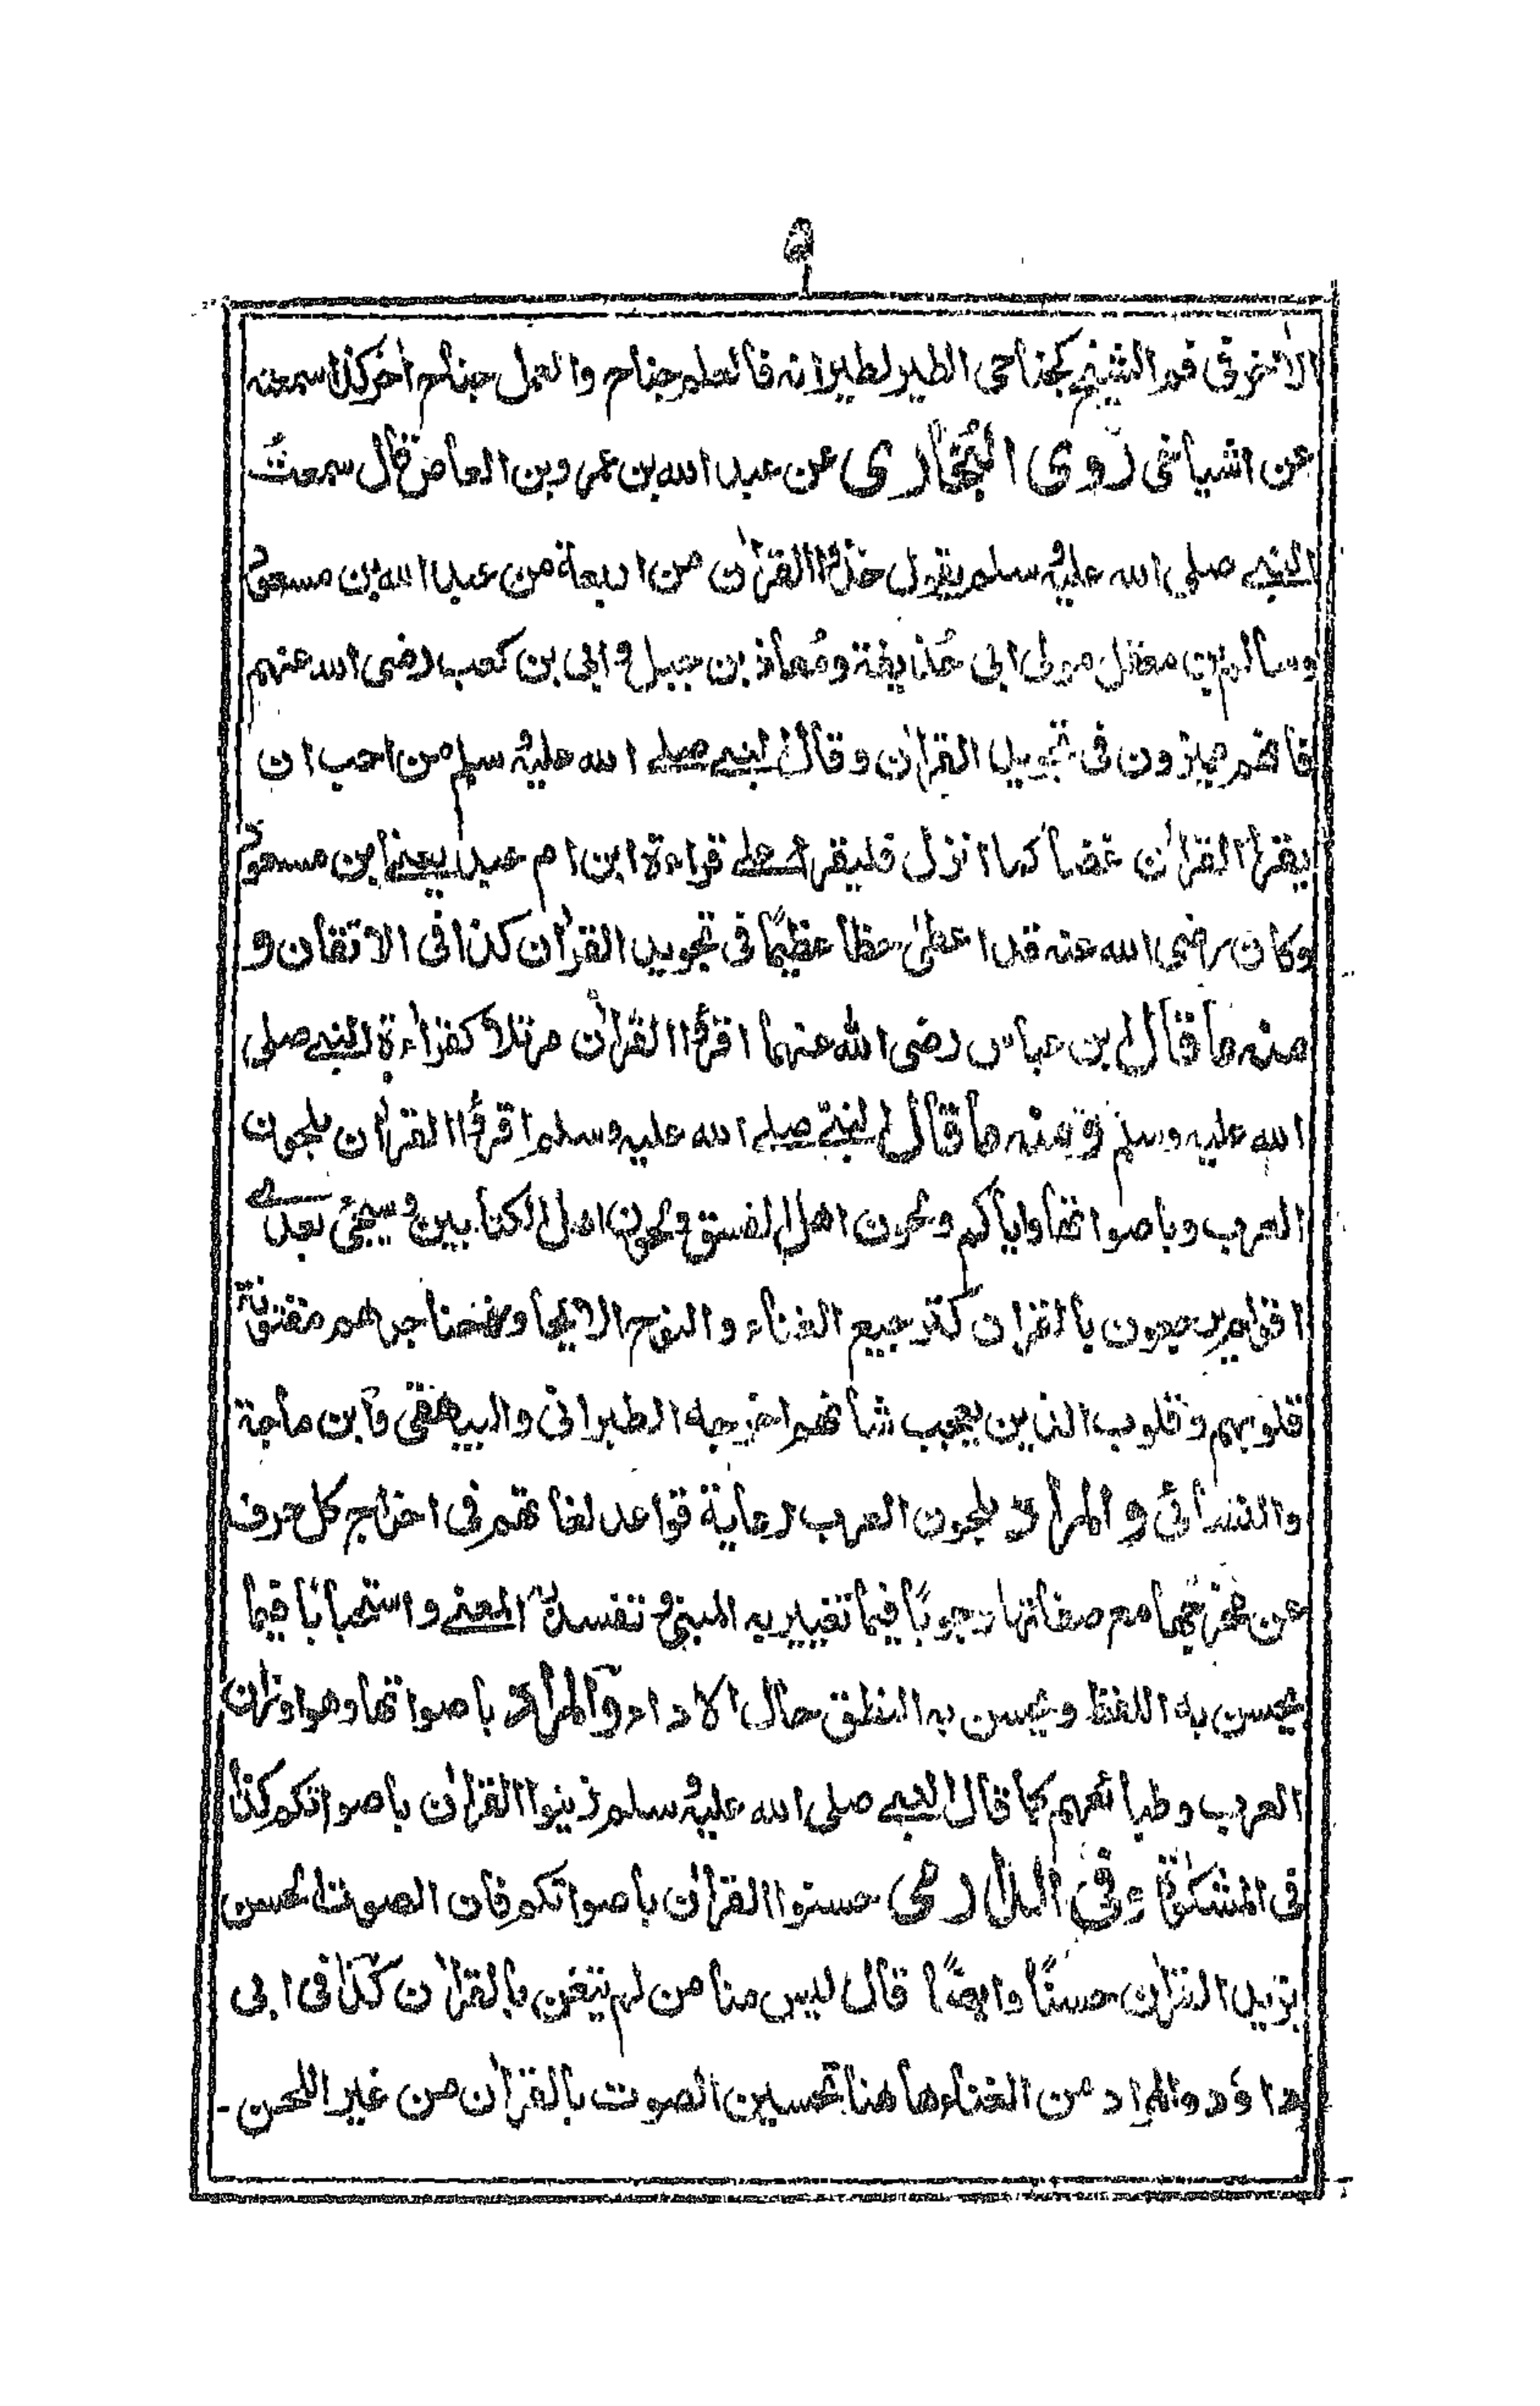 ۵
الاخر فى فم الشيخ كجناحى الطير لطيرانه فالعلم جناح والعمل جناح اخر كذا سمعته
عن اشياخى روى البخارى عن عبد الله بن عمر وبن العاص قال سمعتُ
النبى صلى الله عليه وسلم يقول خذوا القرآن من اربعة من عبد الله بن مسعود
وسالم بن معقل مولى ابى حُذيفة ومُعاذ بن جبل و ابى بن كعب رضى الله عنهم
فانهم ميزون فى تجويد القرآن وقال النبى صلى الله عليه وسلم من احب ان
يقرا القرآن غضا كما انزل فليقرا على قراءة ابن ام عبد يعنى ابن مسعود
وكان رضى الله عنه قد اعطى حظا عظيمًا فى تجويد القرآن كذا فى الاتقان و
منه ما قال ابن عباس رضى الله عنهما اقرؤا القرآن مرتلا كقراءة النبى صلى
الله عليه وسلم ومنه ما قال النبى صلى الله عليه وسلم اقرؤا القرآن بلحون
العرب وباصواتها واياكم ولحون اهل الفسق ولحون اهل الكتابين وسيجئ بعدى
اقوام يرجعون بالقرآن كترجيع الغناء والنوح لا يجاوز حناجرهم مفتونة
قلوبهم وقلوب الذين يعجب شانهم اخرجه الطبرانى والبيهقى وابن ماجة
والنسائى و المراد بلحون العرب رعاية قواعد لغاتهم فى اخراج كل حرف
عن مخرجها مع صفاتها وجوبًا فيما تغيير به المبنى وتفسد به المعنى واستحبابًا فيما
يحسن به اللفظ ويحسن به النطق حال الاداء والمراد باصواتها وهو اوزان
العرب وطبائعهم كما قال النبى صلى الله عليه وسلم زينوا القرآن باصواتكم كذا
فى المشكوٰة وفى الدارمى حسنوا القرآن باصواتكم فان الصوت الحسن
يزيد القرآن حسنًا وايضًا قال ليس منا من لم يتغن بالقرآن كذا فى ابى
داؤد والمراد من الغناء هاهنا تحسين الصوت بالقرآن من غير اللحن -